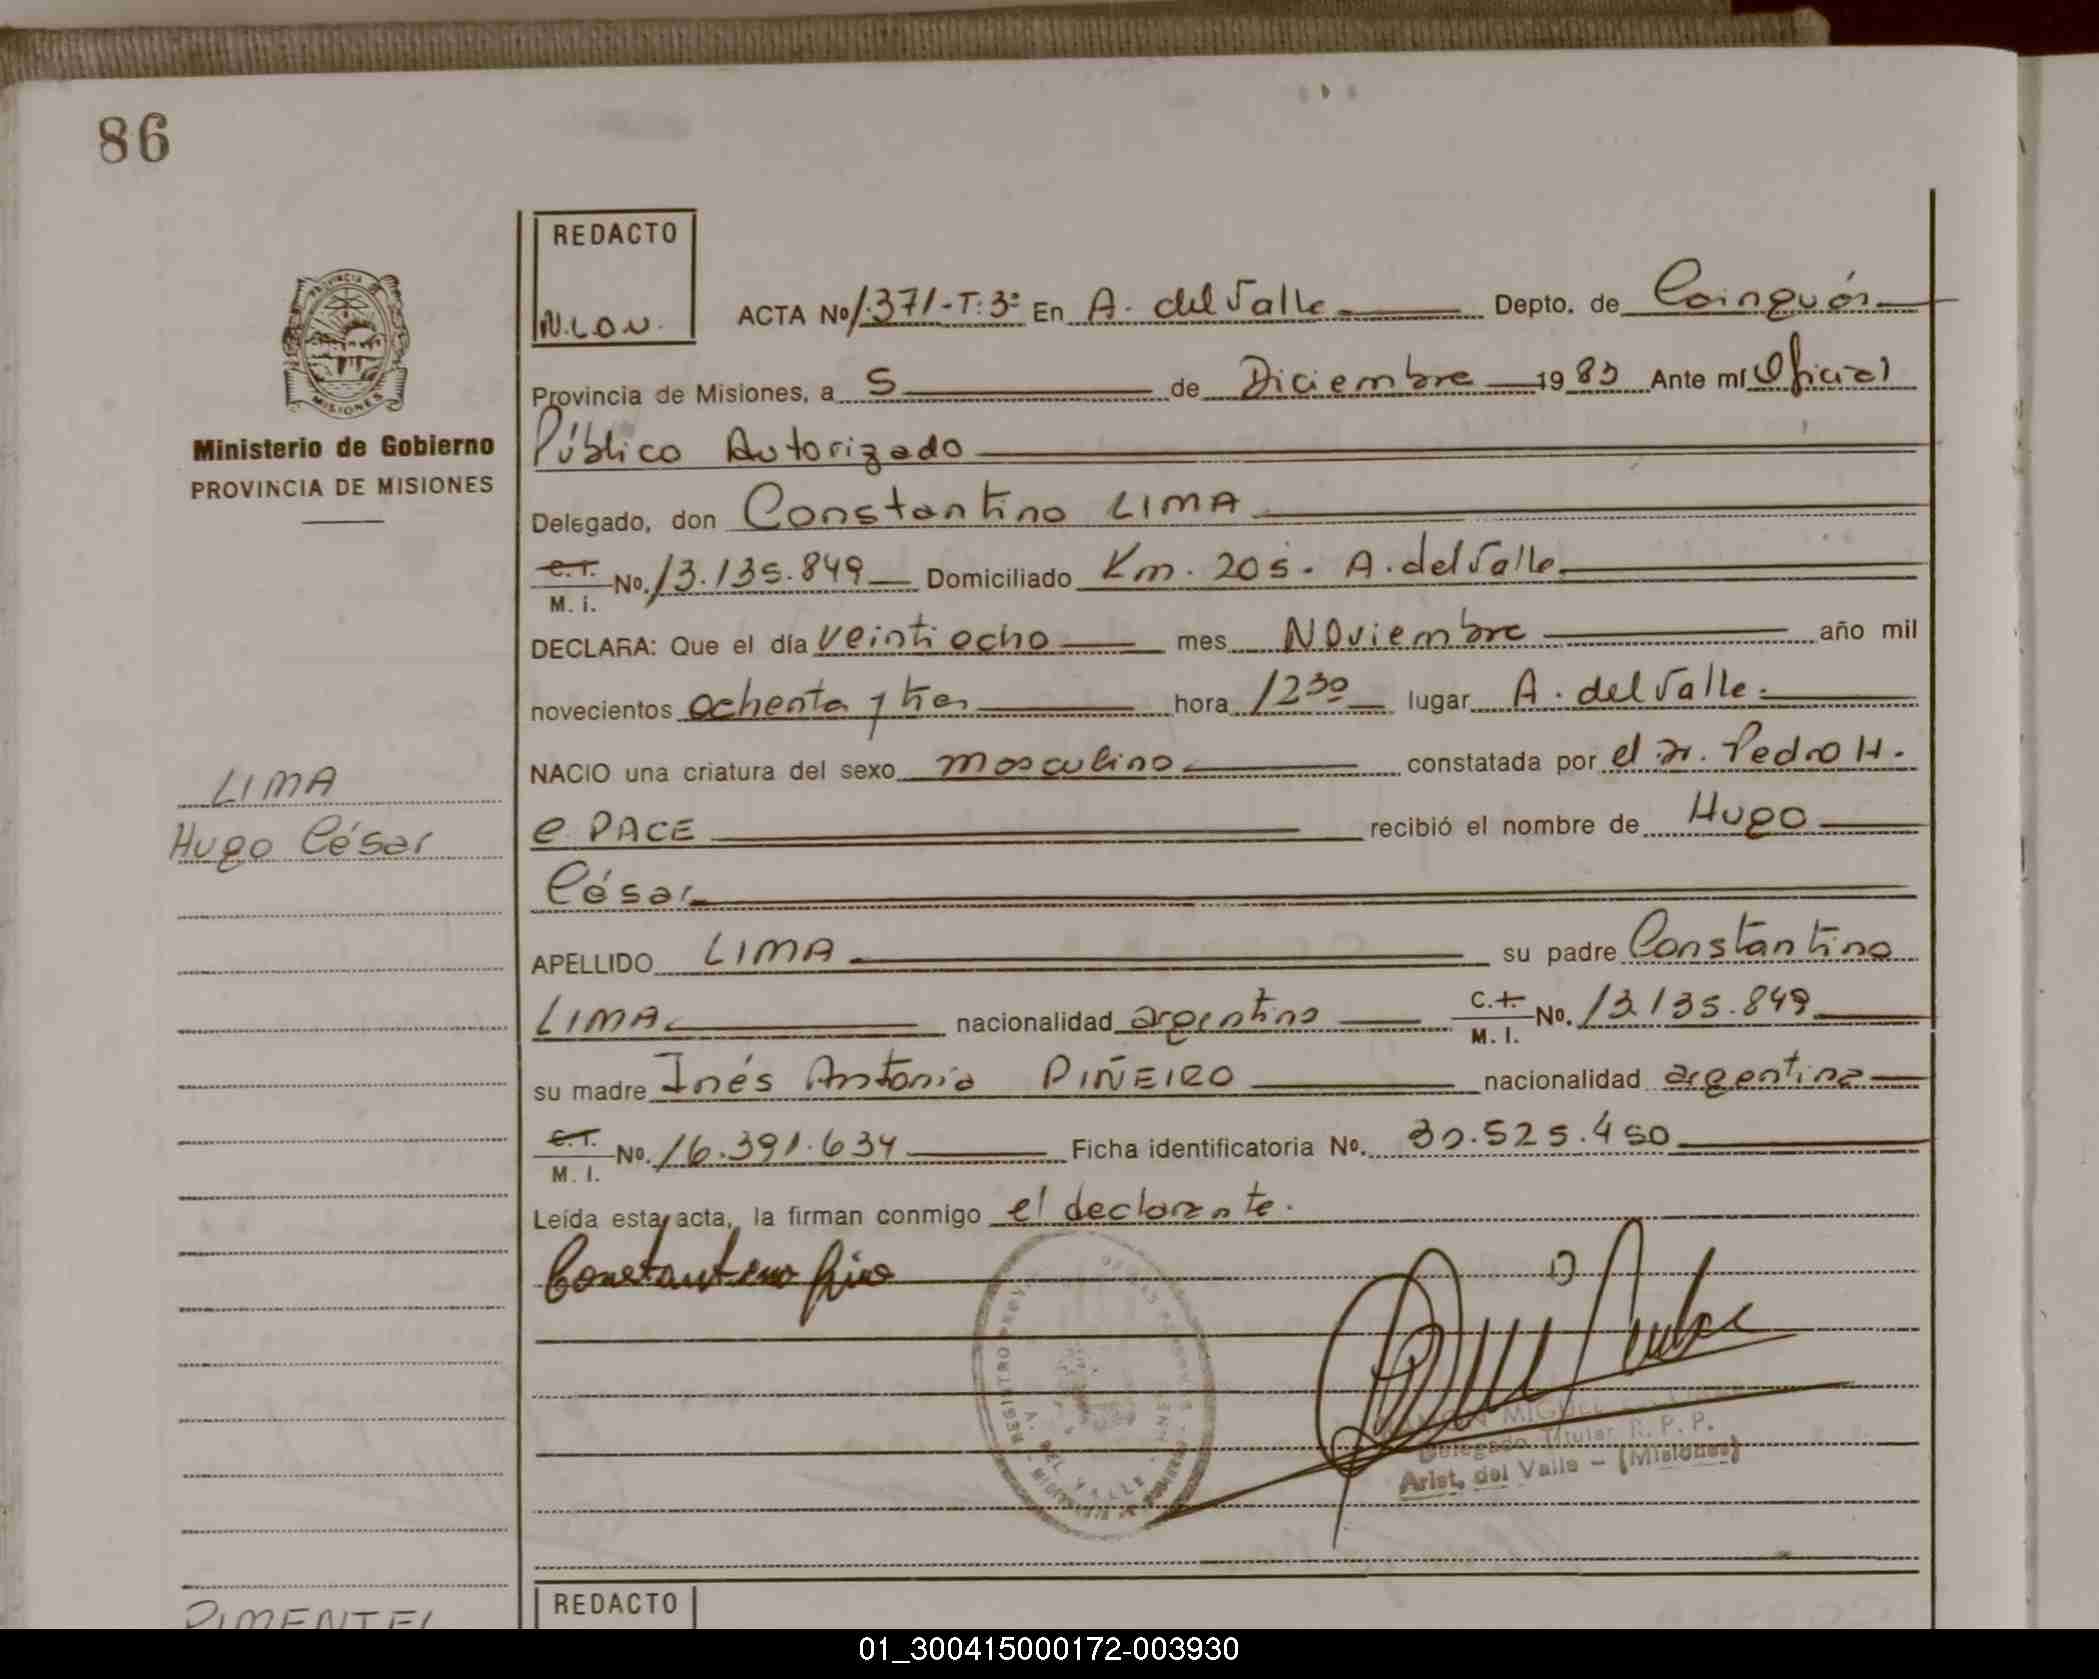 86
REDACTO
N.L.O.N.
ACTA Nº 1.371-T:3º En A. del Valle Depto. de Cainguás
Provincia de Misiones, a 5 de Diciembre 1983 Ante mí Oficial
Público Autorizado
Delegado, don Constantino LIMA
C.I. M. i. No. 13.135.849 Domiciliado Km. 205. A. del Valle
DECLARA: Que el día veintiocho mes Noviembre año mil
novecientos ochenta y tres hora 12 30 lugar A. del Valle.
NACIO una criatura del sexo masculino constatada por el Dr. Pedro H.
e PACE recibió el nombre de Hugo
César
APELLIDO LIMA su padre Constantino
LIMA nacionalidad argentino C.I. M. I. No. 13.135.849
su madre Inés Antonia PIÑEIRO nacionalidad argentina
C.I. M. I. No. 16.391.634 Ficha identificatoria No. 30.525.450
Leída esta acta, la firman conmigo el declarante.
Constantino
MIGUEL
Delegado Titular R. P. P.
Arist. del Valle - (Misiones)
REGISTRO
A. DEL VALLE
PROVINCIA DE
MISIONES
Ministerio de Gobierno
PROVINCIA DE MISIONES
LIMA
Hugo César
PIMENTEL
REDACTO
01_300415000172-003930